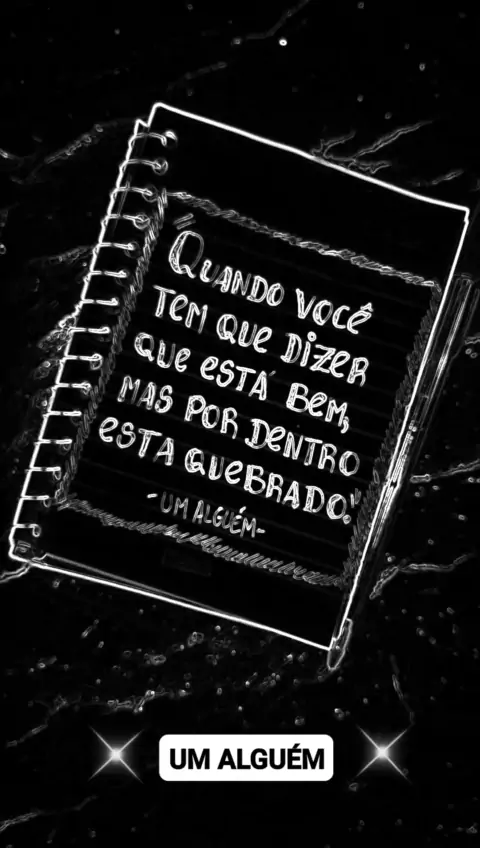 "QUANDO VOCÊ
TEM QUE DIZER
QUE ESTÁ BEM,
MAS POR DENTRO
ESTA QUEBRADO."
-UM ALGUÉM-
UM ALGUÉM